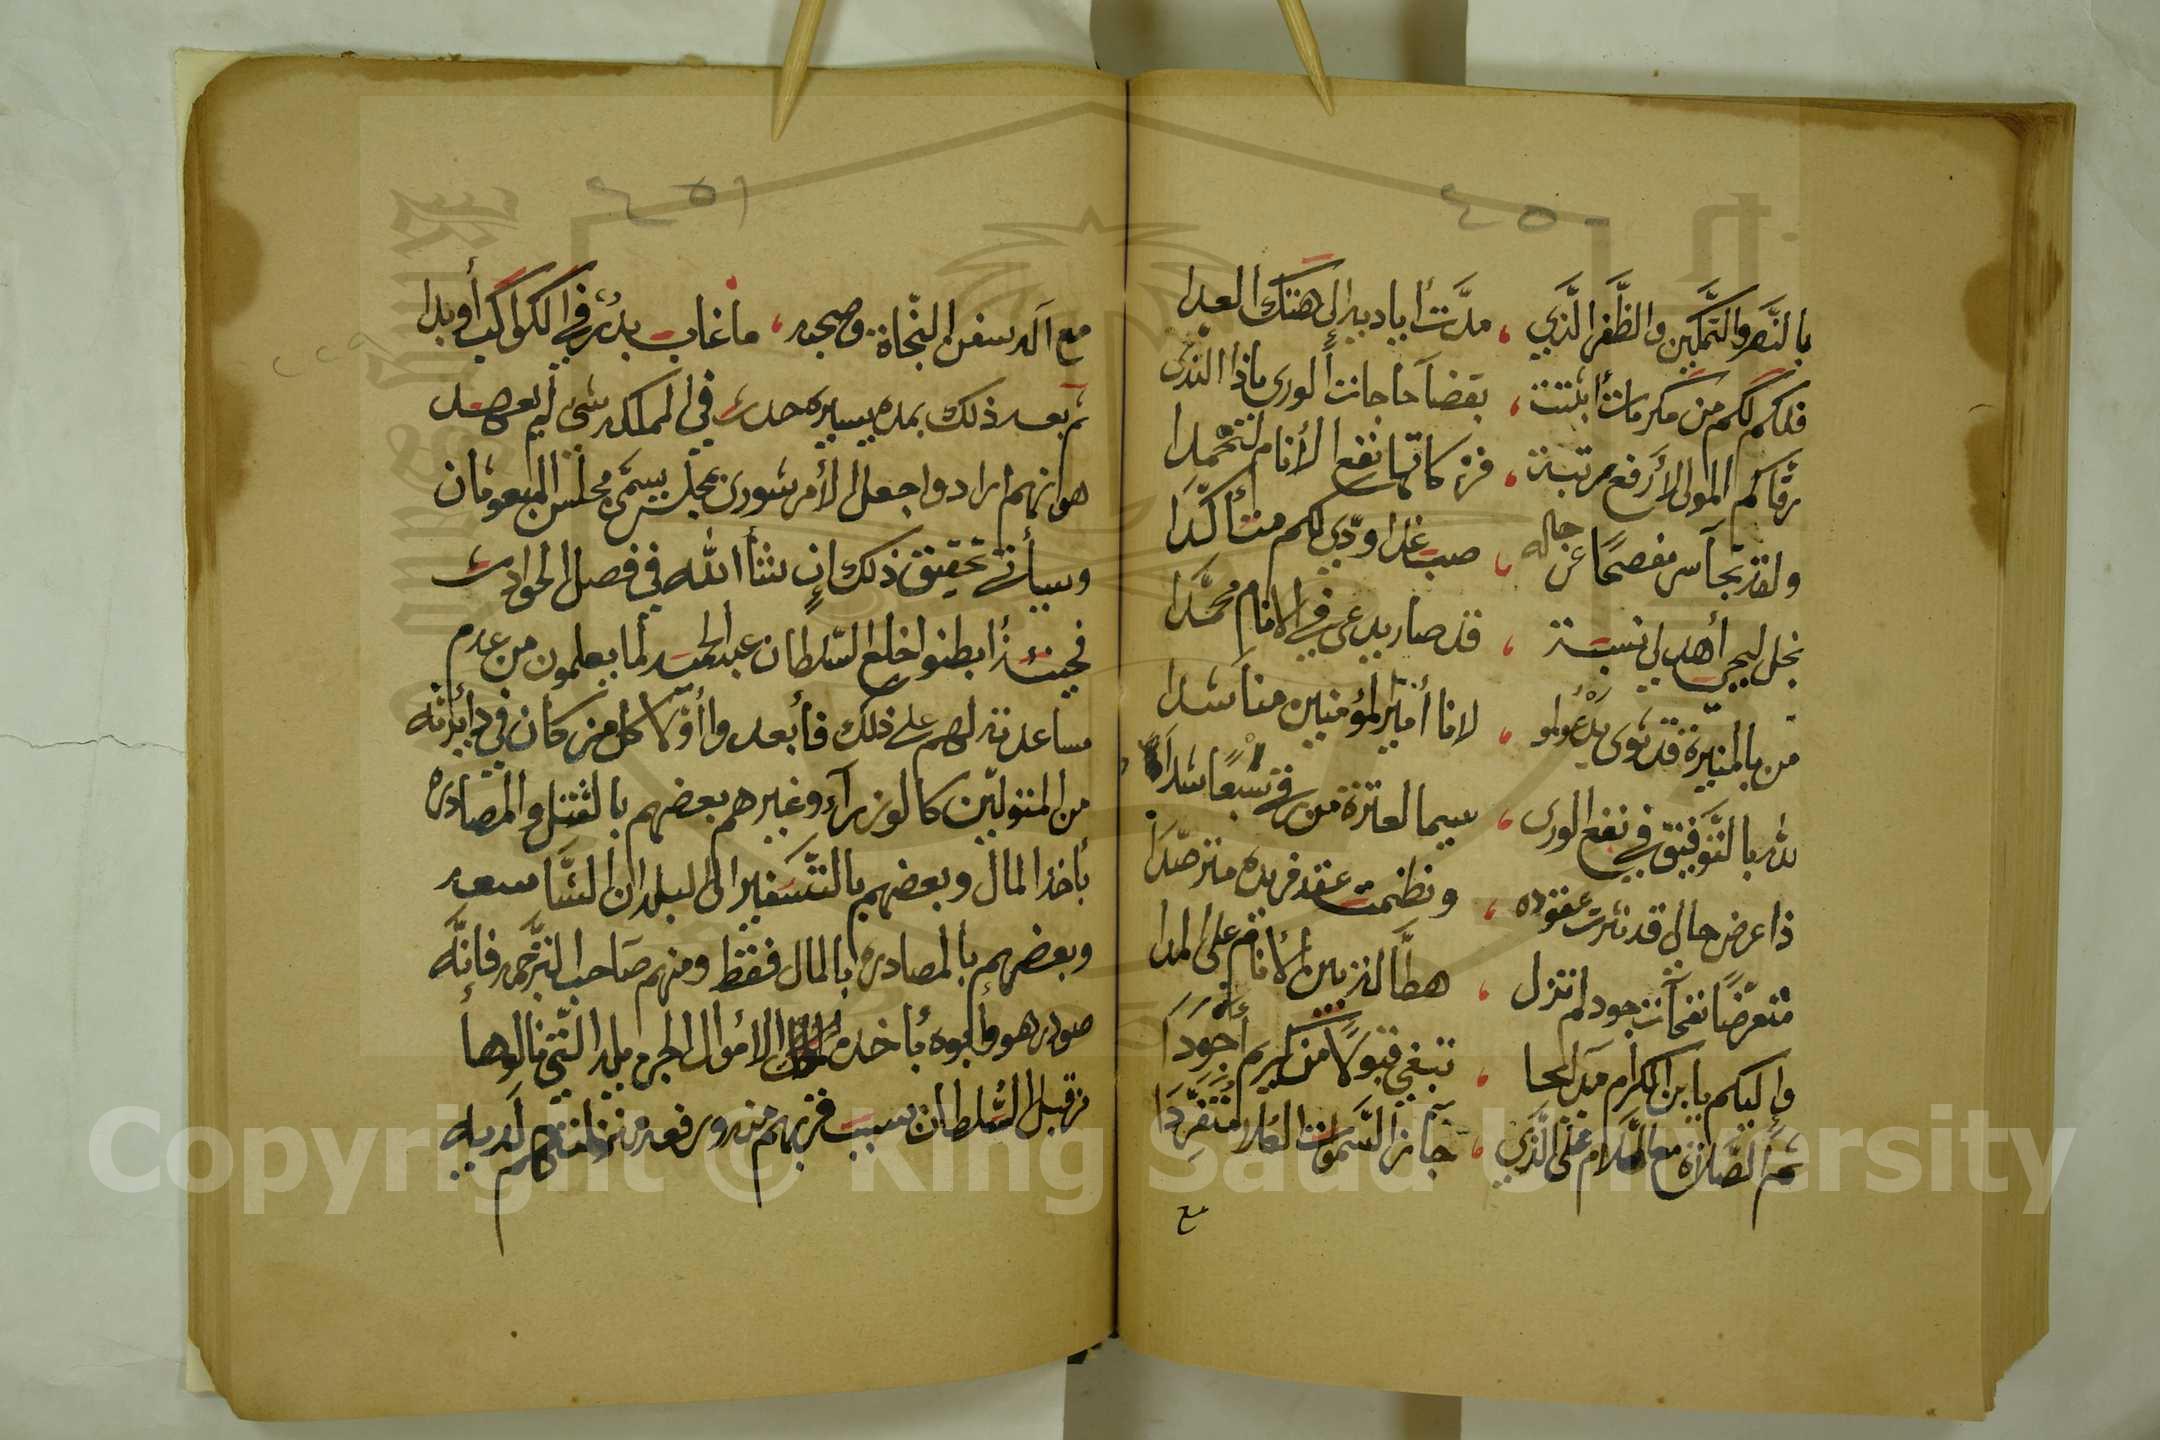 ٤٥٠
بالنَّصر والتَّمكين والظَّفر الَّذي ، مدَّت أياديه إلى هتك العدا
فلكم لكم من مكرمات أثبتت ، بقضا حاجات الورى ماذا الندى
رقاكم المولى لأرفع رتبة ، فزكا نفع الأنام لتحمدا
ولقد تجاسر مفصحًا عن حاله ، صب غدا ودّي لكم متأكّدا
نجل ليحيى أهدلي نسبة ، قد صار يدعى في الانام محمَّدا
من بالمنيرة قد ثوى ، لانا أمير المؤمنين مناشدا
لله بالتَّوفيق في نفع الورى ، سيما لعترة من رقى سبعًا شدادا
ذا عرض حال قد نثرت عقوده ، ونظمت عقد فريده مترصّدا
متعرّضًا نفحات جود لم تزل ، هطَّالة بين الأنام على المدا
وإليكم يا ابن الكرام مدائحا ، تبغي قبولا من كريم أجودا
ثم الصَّلاة مع السَّلام على الَّذي ، جاز السَّموات العلا متفرّدا
مع
٤٥١
مع آله سفن النّجاة وصحبه ، ما غاب بدر في الكواكب أو بدا
ثم بعد ذلك بمده يسيره حدث في المملكه شي لم يعهد
هو انهم ارادوا جعل الأمر شورى بمجلس يسمَّى مجلس المبعوثان
وسيأتي تحقيق ذلك إن شأ الله في فصل الحوادث
فحينئذ ابطنوا خلع السّلطان عبد الحميد لما يعلمون من عدم
مساعدته لهم على ذلك فأبعدوا أوّلا كل من كان في دائرته
من المتولّين كالوزرآء وغيرهم بعضهم بالقتل والمصادره
بأخذ المال وبعضهم بالتَّسفير الى البلدان الشَّاسعه
وبعضهم بالمصادره بالمال فقط ومنهم صاحب التَّرجمه فانَّه
صودر هو وأبوه بأخذ الاموال الجزيله الَّتي نالوها
من قبل السُّلطان سبب قربهم منه ورفعه منزلتهم لديه